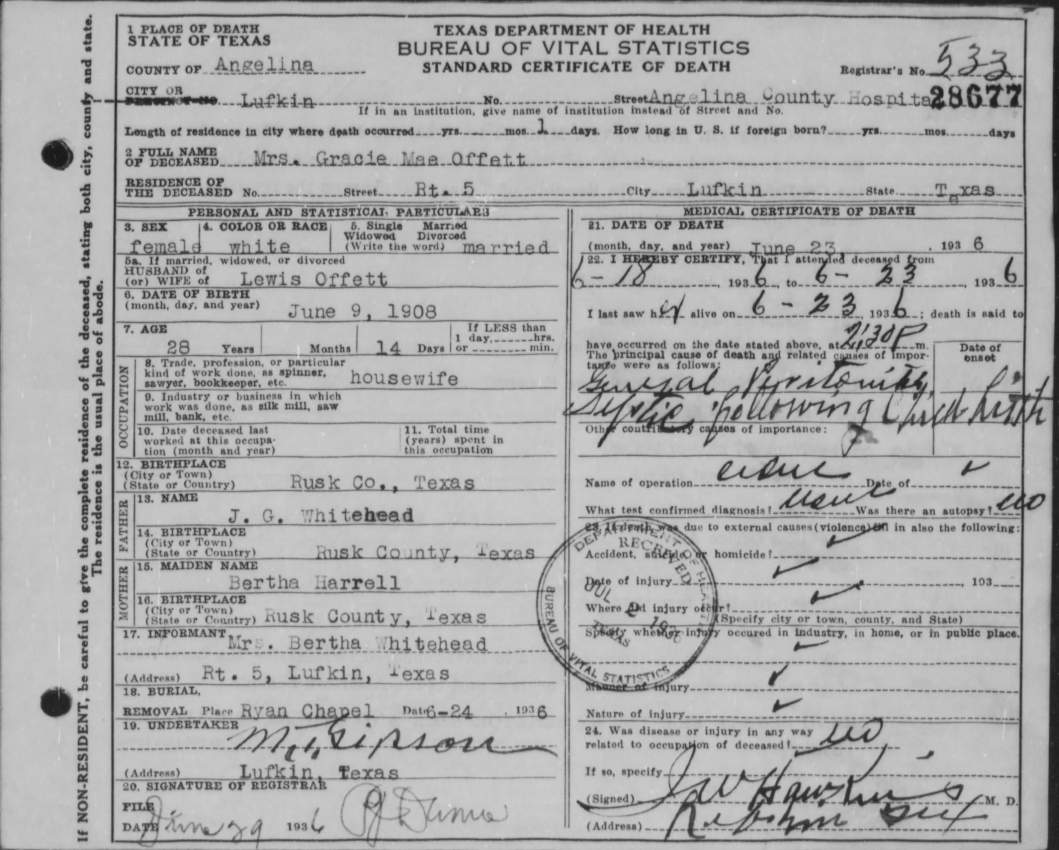 If NON-RESIDENT, be careful to give the complete residence of the deceased, stating both city, county and state.
The residence is the usual place of abode.
1 PLACE OF DEATH
STATE OF TEXAS
COUNTY OF Angelina
TEXAS DEPARTMENT OF HEALTH
BUREAU OF VITAL STATISTICS
STANDARD CERTIFICATE OF DEATH
Registrar's No. 533
28677
CITY OR
PRECINCT NO. Lufkin No. Street Angelina County Hospital
If in an institution, give name of institution instead of Street and No.
Length of residence in city where death occurred yrs. mos. 1 days. How long in U. S. if foreign born? yrs. mos. days
2 FULL NAME
OF DECEASED Mrs. Gracie Mae Offett
RESIDENCE OF
THE DECEASED No. Street Rt. 5 City Lufkin State Texas
PERSONAL AND STATISTICAL PARTICULARS
3. SEX female 4. COLOR OR RACE white 5. Single Married Widowed Divorced (Write the word) married
5a. If married, widowed, or divorced
HUSBAND of
(or) WIFE of Lewis Offett
6. DATE OF BIRTH
(month, day, and year) June 9, 1908
7. AGE 28 Years Months 14 Days If LESS than 1 day, hrs. or min.
OCCUPATION
8. Trade, profession, or particular
kind of work done, as spinner,
sawyer, bookkeeper, etc. housewife
9. Industry or business in which
work was done, as silk mill, saw
mill, bank, etc.
10. Date deceased last
worked at this occupa-
tion (month and year)
11. Total time
(years) spent in
this occupation
12. BIRTHPLACE
(City or Town)
(State or Country) Rusk Co., Texas
FATHER
13. NAME
J. G. Whitehead
14. BIRTHPLACE
(City or Town)
(State or Country) Rusk County, Texas
MOTHER
15. MAIDEN NAME
Bertha Harrell
16. BIRTHPLACE
(City or Town)
(State or Country) Rusk County, Texas
17. INFORMANT
Mrs. Bertha Whitehead
(Address) Rt. 5, Lufkin, Texas
18. BURIAL,
REMOVAL Place Ryan Chapel Date 6-24 , 1936
19. UNDERTAKER
Gipson
(Address) Lufkin, Texas
20. SIGNATURE OF REGISTRAR
FILE
DATE June 29 1936
MEDICAL CERTIFICATE OF DEATH
21. DATE OF DEATH
(month, day, and year) June 23 , 1936
22. I HEREBY CERTIFY, That I attended deceased from
6-18 , 1936, to 6-23 , 1936
I last saw her alive on 6-23 , 1936; death is said to
have occurred on the date stated above, at 2:30P m.
The principal cause of death and related causes of impor-
tance were as follows:
Date of
onset
General Peritonitis,
Septic following Child birth
Other contributory causes of importance:
Name of operation none Date of
What test confirmed diagnosis? Was there an autopsy? no
23. If death was due to external causes (violence) fill in also the following:
Accident, suicide, or homicide?
Date of injury , 193
Where did injury occur?
(Specify city or town, county, and State)
Specify whether injury occured in industry, in home, or in public place.
Manner of injury
Nature of injury
24. Was disease or injury in any way
related to occupation of deceased? no
If so, specify
(Signed) Hawkins M. D.
(Address)
DEPARTMENT OF HEALTH
RECEIVED
JUL 2
TEXAS
BUREAU OF VITAL STATISTICS